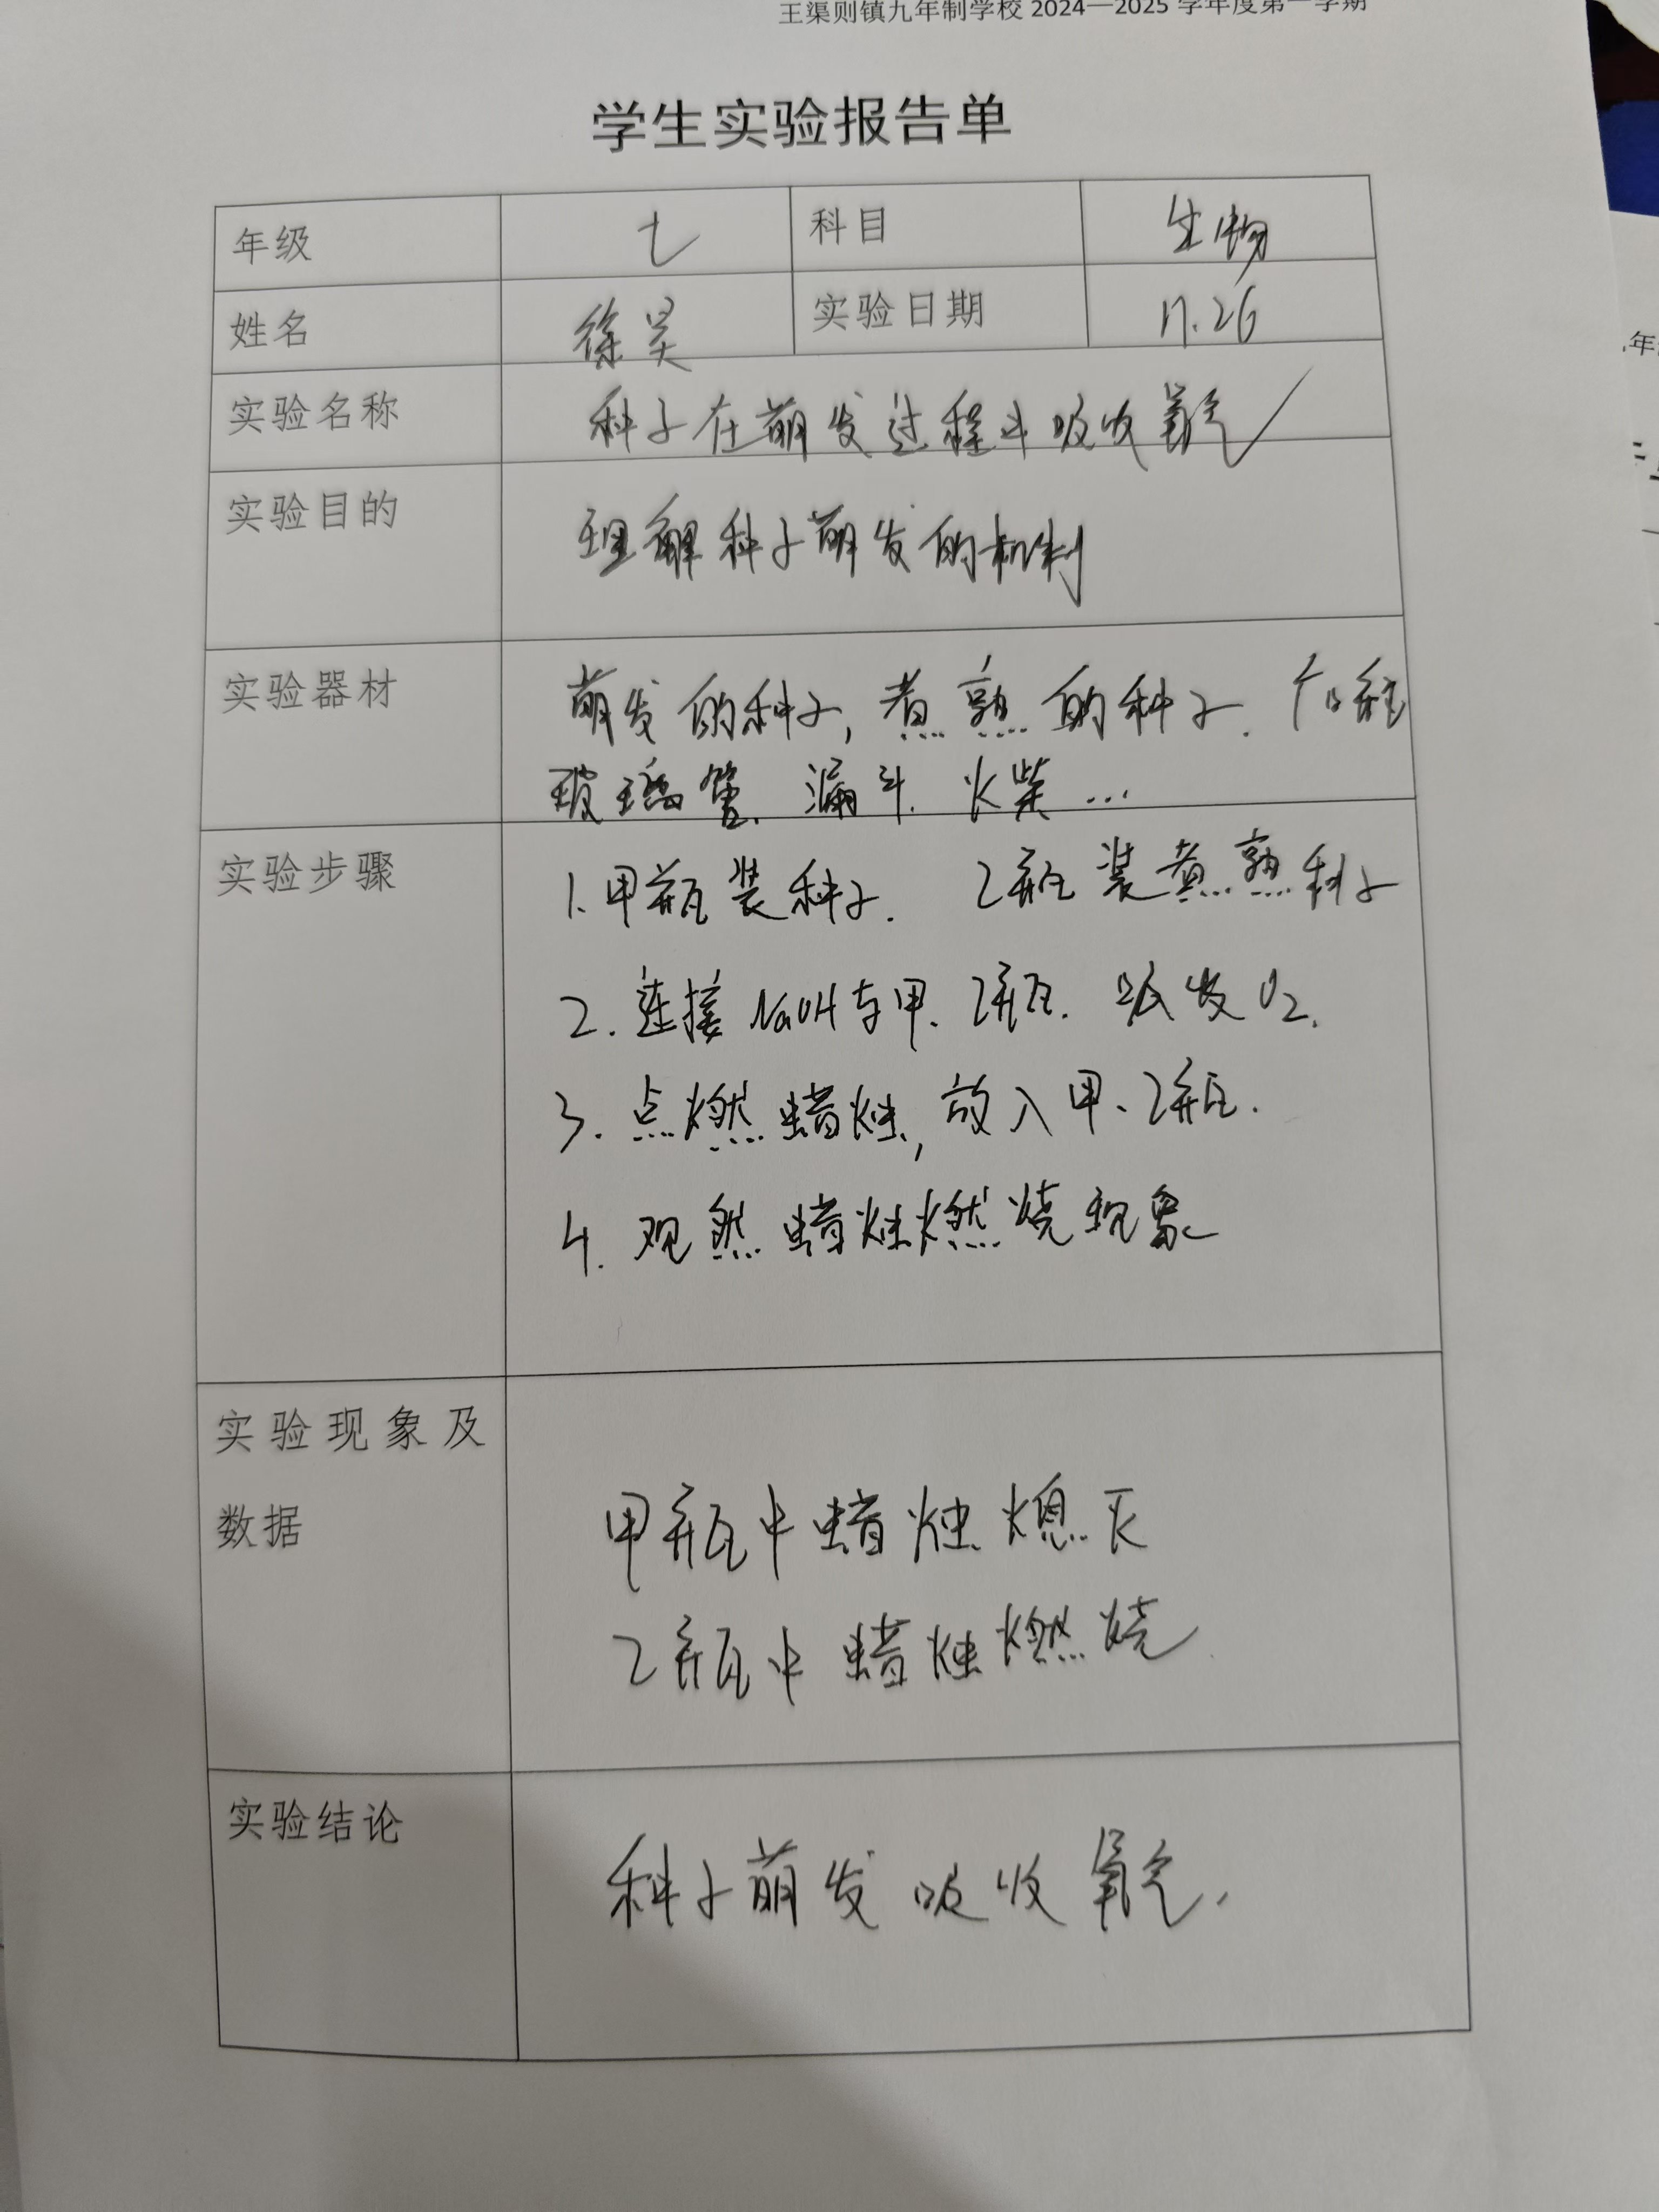 王渠则镇九年制学校 2024—2025 学年度第一学期
学生实验报告单
年级 七 科目 生物
姓名 徐昊 实验日期 11.26
实验名称 种子在萌发过程中吸收氧气
实验目的 理解种子萌发的机制
实验器材 萌发的种子, 煮熟的种子. 广口瓶
玻璃管. 漏斗. 火柴...
实验步骤 1. 甲瓶装种子. 乙瓶装煮熟种子
2. 连接 NaOH 与甲. 乙瓶. O2.
3. 点燃蜡烛, 放入甲、乙瓶.
4. 观然蜡烛燃烧现象
实验现象及
数据 甲瓶中蜡烛熄灭
乙瓶中蜡烛燃烧
实验结论 种子萌发吸收氧气.